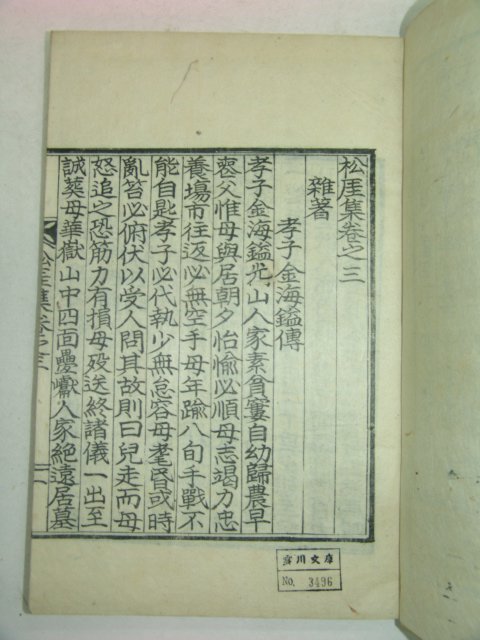 松厓集卷之三
雜著
孝子金海鎰傳
孝子金海鎰光山人家素貧窶自幼歸農早
喪父惟母與居朝夕怡愉必順母志竭力忠
養場市往返必無空手母年踰八旬手戰不
能自匙孝子必代執少無怠容母耄昏或時
亂笞必俯伏以受人問其故則曰兒走而母
怒追之恐筋力有損母歿送終諸儀一出至
誠葬母華嶽山中四面疊巘人家絶遠居墓
松厓集卷之三
一
川文庫
No. 3496